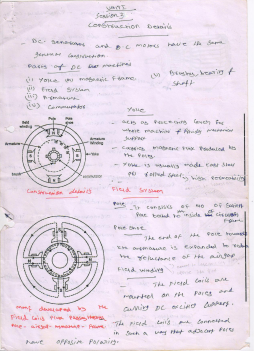 UNIT I
Session 3
Construction Details
DC generators and DC motors have the same
general construction
Parts of DC machines
(i) Yoke (or) magnetic frame
(v) Brushes, bearing &
shaft
(ii) Field System
(iii) Armature
(iv) Commutator
Yoke
- acts as protecting cover for
whole machine & provides mechanical
support
- carries magnetic flux produced by
the poles
- Yoke is usually made cast steel
(or) rolled steel, high permeability
Field winding
Pole
Pole shoe
Armature Winding
Armature
Yoke
Construction details
Field System
Pole: It consists of no of
Pole bolted to inside
Pole shoe
The end of the Pole towards
the armature is expanded to reduce
the reluctance of the airgap
Field winding
The Field Coils are
mounted on the Poles and
carrying DC exciting current.
The Field Coils are connected
in such a way that adjacent Poles
have opposite Polarity.
developed by the
Field Coils
Pole, airgap, armature, frame